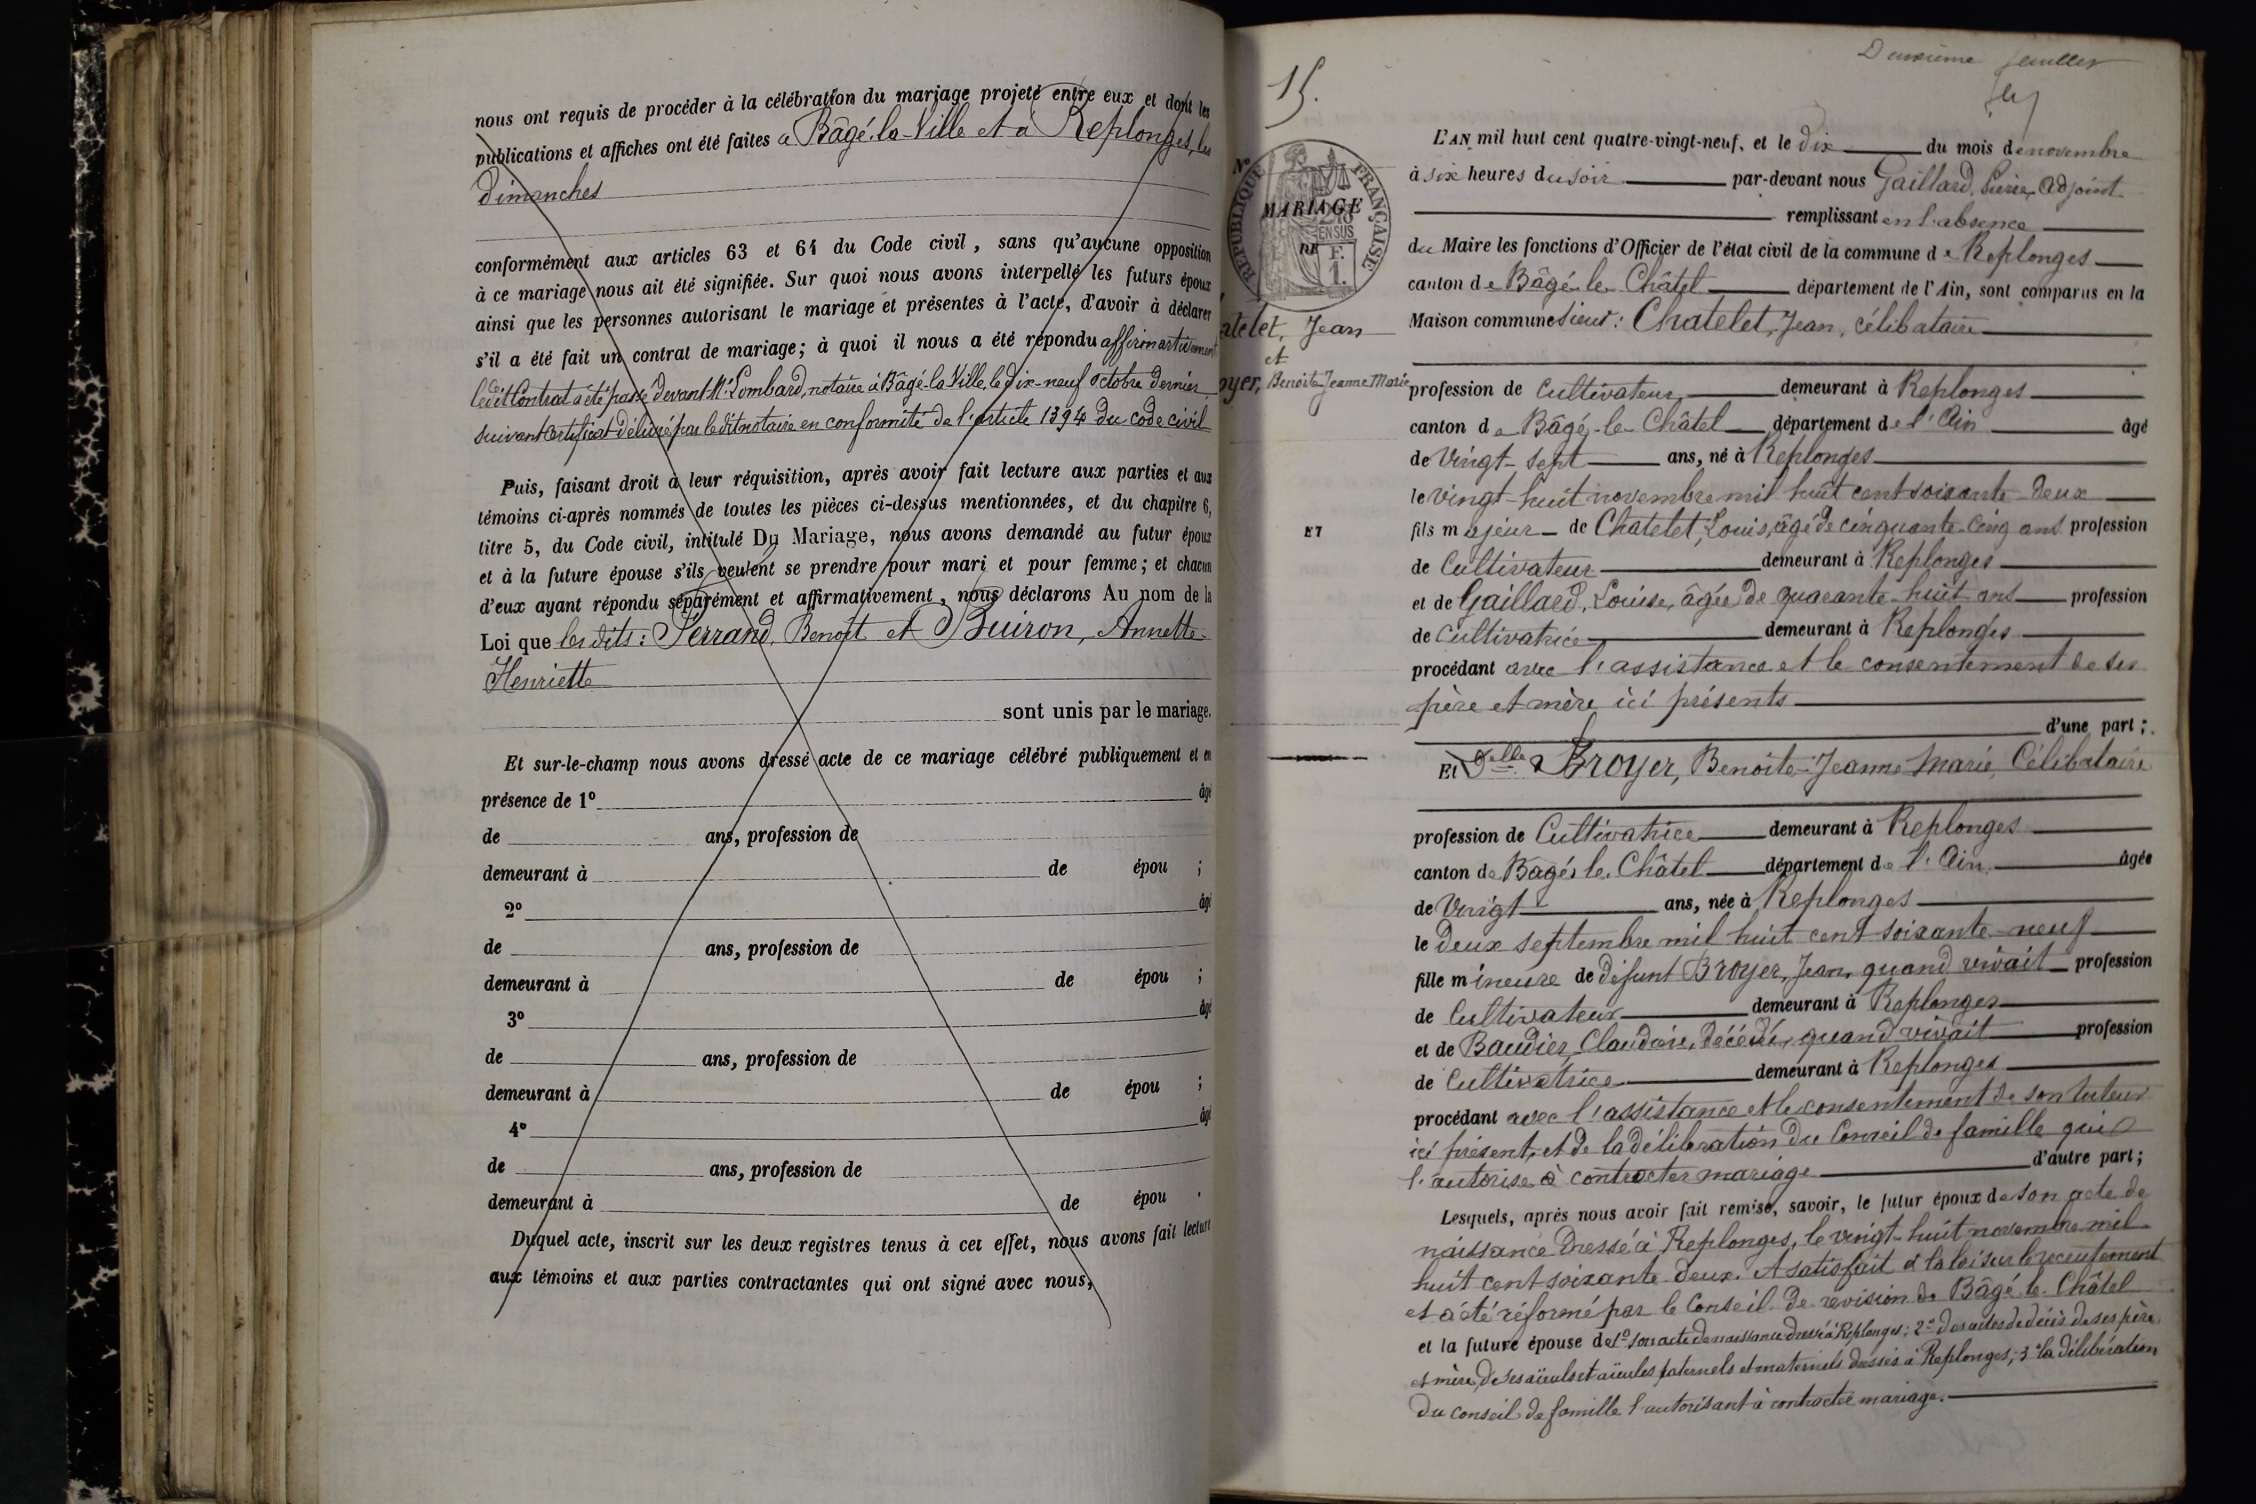 nous ont requis de procéder à la célébration du mariage projeté entre eux et dont les
publications et affiches ont été faites a Bâgé-la-Ville et à Replonges, les
dimanches
conformément aux articles 63 et 64 du Code civil, sans qu'aucune opposition
à ce mariage nous ait été signifiée. Sur quoi nous avons interpellé les futurs époux
ainsi que les personnes autorisant le mariage et présentes à l'acte, d'avoir à déclarer
s'il a été fait un contrat de mariage; à quoi il nous a été répondu affirmativement
ledit Contrat a été passé devant Me Lombard, notaire à Bâgé-la-Ville, le dix-neuf octobre dernier
suivant certificat délivré par ledit notaire en conformité de l'article 1394 du code civil
Puis, faisant droit à leur réquisition, après avoir fait lecture aux parties et aux
témoins ci-après nommés de toutes les pièces ci-dessus mentionnées, et du chapitre 6,
titre 5, du Code civil, intitulé Du Mariage, nous avons demandé au futur époux
et à la future épouse s'ils veulent se prendre pour mari et pour femme; et chacun
d'eux ayant répondu séparément et affirmativement, nous déclarons Au nom de la
Loi que les dits: Ferrand, Benoît et Buiron, Annette-
Henriette
sont unis par le mariage.
Et sur-le-champ nous avons dressé acte de ce mariage célébré publiquement et en
présence de 1° âgé
de ans, profession de
demeurant à de épou ;
2° âgé
de ans, profession de
demeurant à de épou ;
3° âgé
de ans, profession de
demeurant à de épou ;
4° âgé
de ans, profession de
demeurant à de épou .
Duquel acte, inscrit sur les deux registres tenus à cet effet, nous avons fait lecture
aux témoins et aux parties contractantes qui ont signé avec nous,
Deuxième feuillet
15.
N°
RÉPUBLIQUE FRANÇAISE
MARIAGE
DE
F.
1.
atelet, Jean
et
oyer, Benoite-Jeanne Marie
ET
L'AN mil huit cent quatre-vingt-neuf, et le dix du mois de novembre
à six heures du soir par-devant nous Gaillard, Pierre, adjoint
remplissant en l'absence
du Maire les fonctions d'Officier de l'état civil de la commune de Replonges
canton de Bâgé-le-Châtel département de l'Ain, sont comparus en la
Maison commune sieur: Chatelet, Jean, célibataire
profession de Cultivateur, demeurant à Replonges
canton de Bâgé-le-Châtel département de l'Ain âgé
de vingt-sept ans, né à Replonges
le vingt-huit novembre mil huit cent soixante-deux
fils majeur de Chatelet, Louis, âgé de cinquante-cinq ans profession
de Cultivateur demeurant à Replonges
et de Gaillard, Louise, âgée de quarante-huit ans profession
de cultivatrice demeurant à Replonges
procédant avec l'assistance et le consentement de ses
père et mère ici présents
d'une part;
Et Delle Broyer, Benoite-Jeanne Marie, Célibataire
profession de Cultivatrice demeurant à Replonges
canton de Bâgé-le-Châtel département de l'Ain âgée
de vingt ans, née à Replonges
le deux septembre mil huit cent soixante-neuf
fille mineure de défunt Broyer, Jean, quand vivait profession
de Cultivateur demeurant à Replonges
et de Baudier, Claudine, décédée, quand vivait profession
de Cultivatrice demeurant à Replonges
procédant avec l'assistance et le consentement de son tuteur
ici présent, et de la délibération du Conseil de famille qui
l'autorise à contracter mariage d'autre part;
Lesquels, après nous avoir fait remise, savoir, le futur époux de son acte de
naissance dressé à Replonges, le vingt-huit novembre mil
huit cent soixante-deux. A satisfait à la loi sur le recrutement
et a été réformé par le Conseil de revision de Bâgé-le-Châtel
et la future épouse de 1° son acte de naissance dressé à Replonges; 2° des actes de décès de ses père
et mère, de ses aïeuls et aïeules paternels et maternels dressés à Replonges; 3° la délibération
du conseil de famille l'autorisant à contracter mariage.